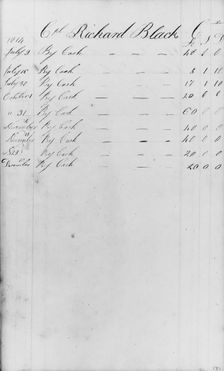 1814 Col Richard Black C
July 3 By Cash — — — 40 0 0
July 18 By Cash — — — 5 1 10
July 20 By Cash — — — 17 1 10
October 1 By Cash — — — 20 0 0
" 31 By Cash — — — 60 0 0
November By Cash — — — 40 0 0
November By Cash — — — 40 0 0
By Cash — — — 40 0 0
December By Cash — — — 20 0 0